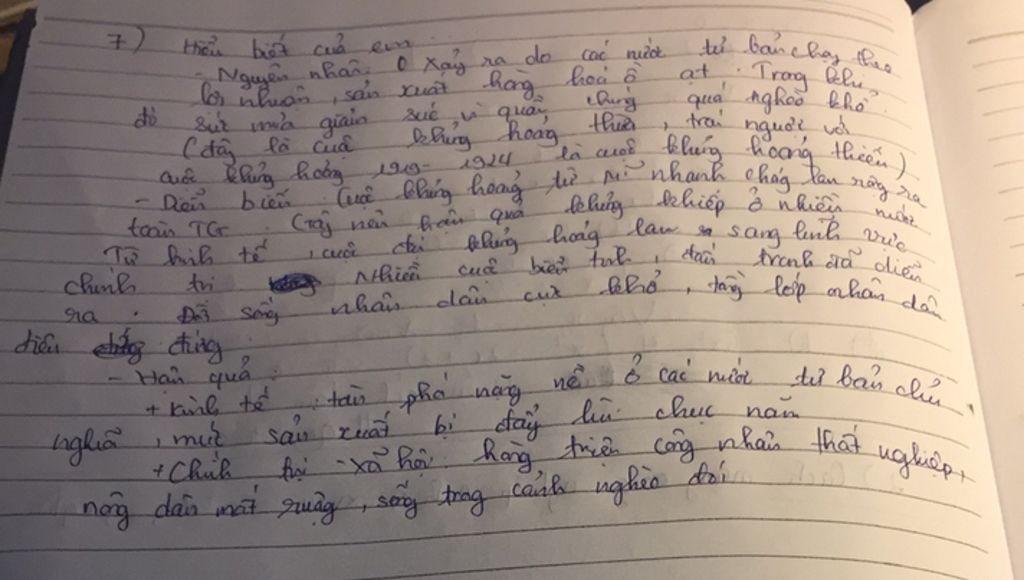 7) Hiểu biết của em
- Nguyên nhân: xảy ra do các nước tư bản chạy theo
lợi nhuận, sản xuất hàng hoá ồ ạt. Trong khi
đó sức mua giảm sút vì quần chúng quá nghèo khổ.
(đây là cuộc khủng hoảng thừa, trái người với
cuộc khủng hoảng 1919- 1924 là cuộc khủng hoảng thiếu)
- Diễn biến: Cuộc khủng hoảng từ Mĩ nhanh chóng lan rộng ra
toàn TG. Gây nên hậu quả khủng khiếp ở nhiều nước
Từ kinh tế, cuộc khủng hoảng lan sang lĩnh vực
chính trị Nhiều cuộc biểu tình, đấu tranh đã diễn
ra. Đời sống nhân dân cực khổ, tầng lớp nhân dân
điêu đứng
- Hậu quả:
+ Kinh tế: tàn phá nặng nề ở các nước tư bản chủ
nghĩa, mức sản xuất bị đẩy lùi chục năm
+ Chính trị - xã hội: hàng triệu công nhân thất nghiệp,
nông dân mất ruộng, sống trong cảnh nghèo đói